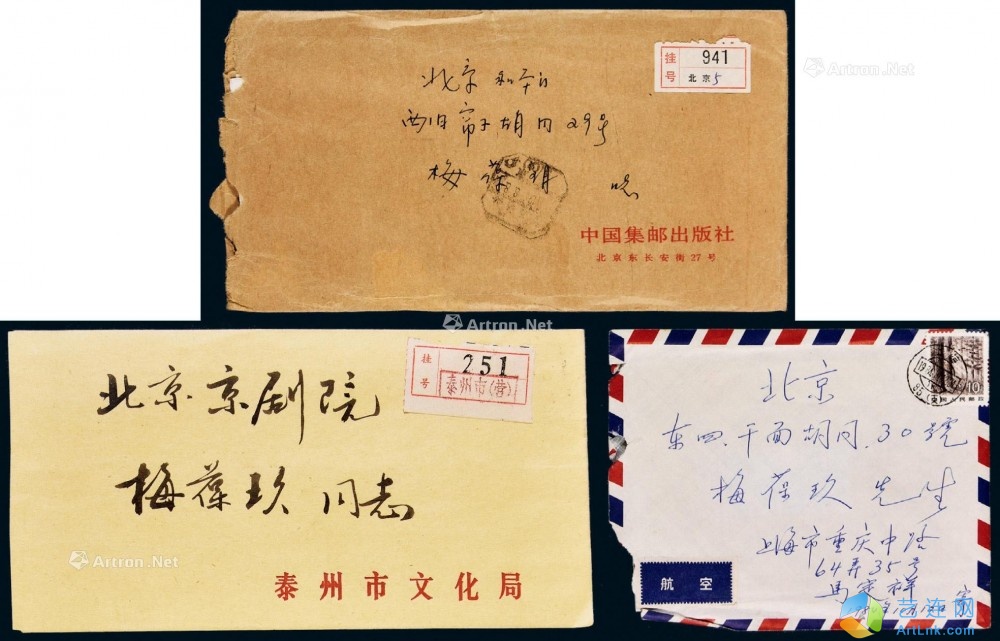 挂号
941
北京5
北京和平门
西旧帘子胡同29号
梅葆玥
中国集邮出版社
北京东长安街27号
Artron.Net
Artron.Net
挂号
251
泰州市(营)
北京京剧院
梅葆玖 同志
泰州市文化局
Artron.Net
10
北京
东四.干面胡同.30號
梅葆玖先生
上海市重庆中路
64弄35号
马定祥
航空
艺连网
ArtLink.com